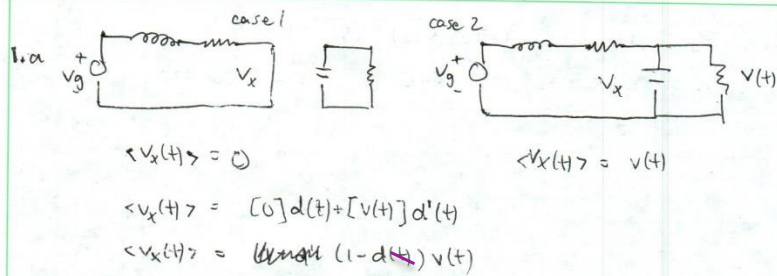 case 1 case 2
1.a Vg + Vx Vg + - Vx V(t)
<Vx(t)> = 0 <Vx(t)> = v(t)
<Vx(t)> = [0]d(t)+[v(t)]d'(t)
<Vx(t)> = (1-d(t))v(t)